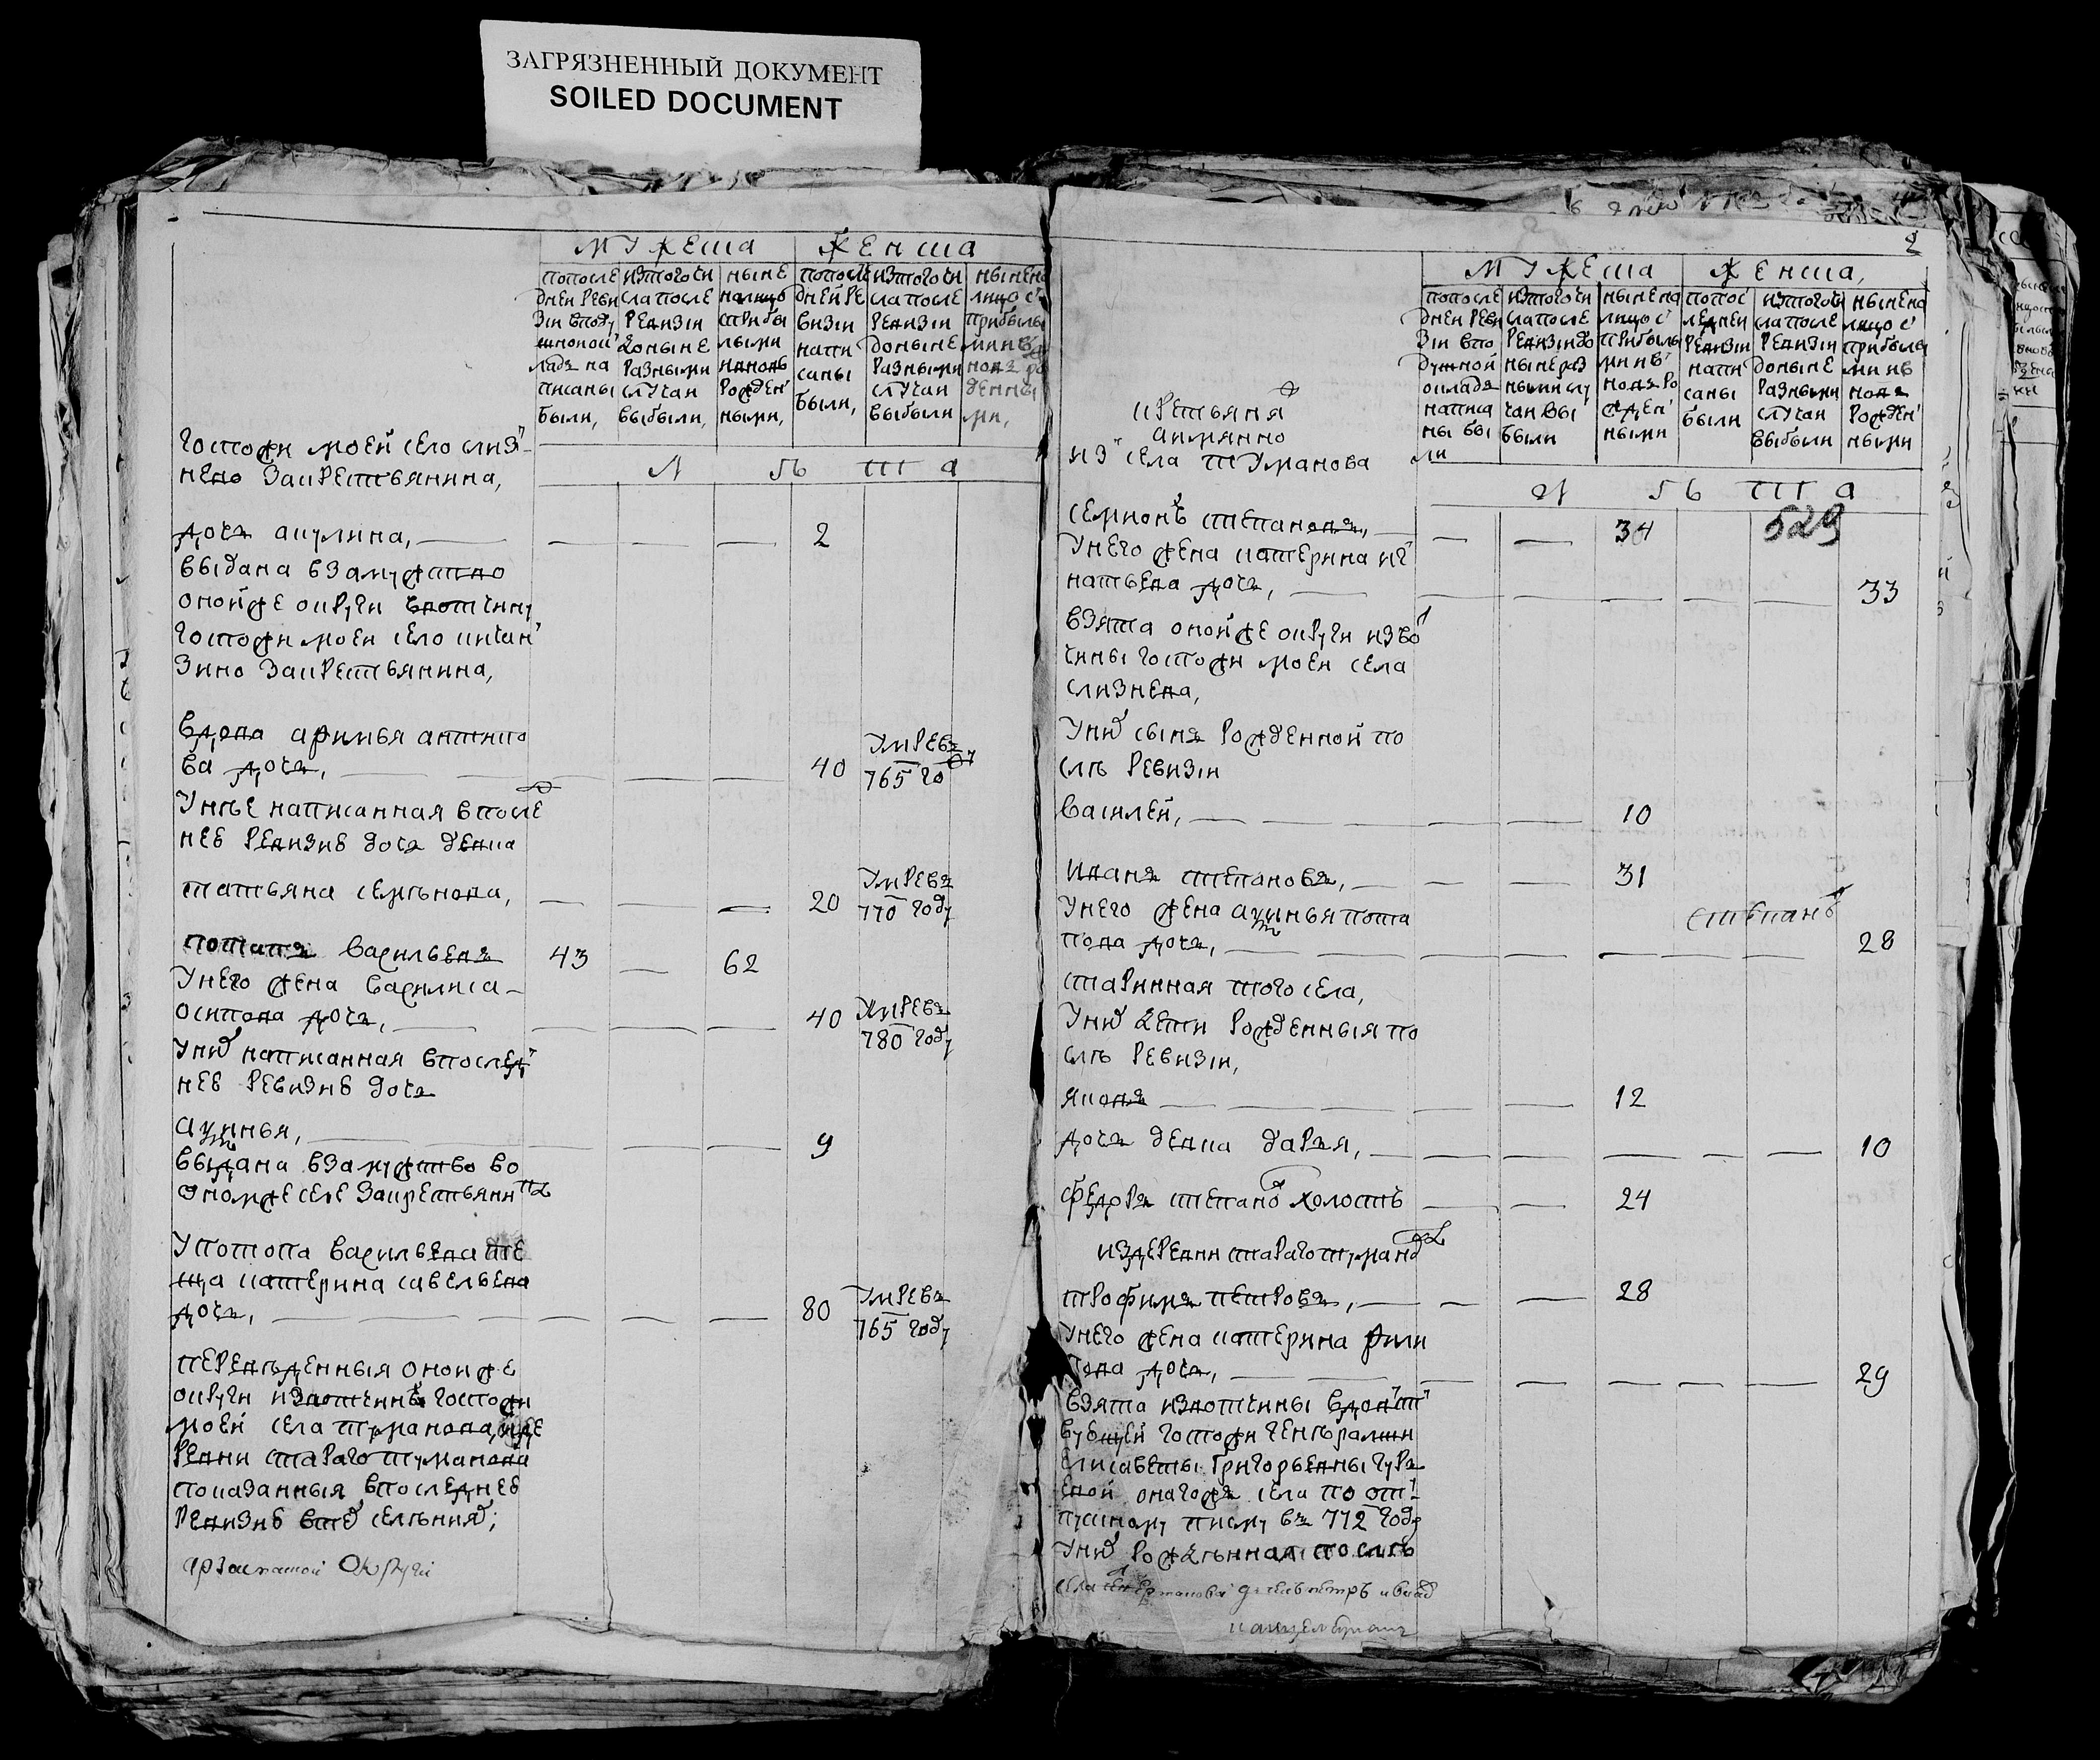 ЗАГРЯЗНЕННЫЙ ДОКУМЕНТ
SOILED DOCUMENT
мужеска женска
попосле дней ревизiи вподушной окладъ написаны были,
изтого числа после ревизiи доныне разными случаи выбыли,
ныне налицо сприбылыми ивновь рожденными,
попоследней ревизiи написаны были,
изтого числа после ревизiи доныне разными случаи выбыли
ныне налицо сприбылыми ивновь рожденными,
л ѣ т а
госпожи моей село слиз
нево закрестьянина,
дочь акулина, 2
выдана взамужство
онойже округи вотчину
госпожи моей село кичан
зино закрестьянина,
вдова афимья антипо
ва дочь, 40 умре въ 765 го
унѣе написанная впосле
ней ревизиѣ дочь девка
татьяна семенова, 20 умре въ 770 году
потапъ васильевъ 43 62
унего жена василиса
осипова дочь, 40 умре въ 780 году
уних написанная впослед
ней ревизиѣ дочь
аксинья, 9
выдана взамужство во
ономже селе закрестьянина
употопа васильева те
ща катерина савельева
дочь, 80 умре въ 765 году
переведенныя онойже
округи извотчинъ госпожи
моей села туманова, идере
вни стараго туманова
показанныя впоследней
ревизиѣ втех селениях;
арзамаской округи
2
мужеска женска,
попосле дней ревизiи вподушной окладъ написаны были
изтого числа после ревизiи доныне разными случаи выбыли
ныне налицо сприбылыми ивновь рожденными
попоследней ревизiи написаны были
изтого числа после ревизiи доныне разными случаи выбыли
ныне налицо сприбылыми ивновь рожденными
крестьяня
аимянно
из села туманова
л ѣ т а
529
семионъ степановъ, 34
унего жена катерина иг
натьева дочь, 33
взята онойже округи изво
чины госпожи моей села
слизнева,
уних сынъ рожденной по
слѣ ревизiи
василей, 10
иванъ степановъ, 31
степанъ
унего жена аксинья пота
пова дочь, 28
старинная того села,
уних дети рожденныя по
слѣ ревизiи,
яковъ 12
дочь девка дарья, 10
федоръ степанов холостъ 24
издеревни стараго туманова
трофимъ петровъ, 28
унего жена катерина фили
пова дочь, 29
взята извотчины вдовст
вующей госпожи генералши
елисаветы григорьевны
оногожъ села по от
пускному писму въ 772 году
уних рожденная послѣ
села
канцеляристъ